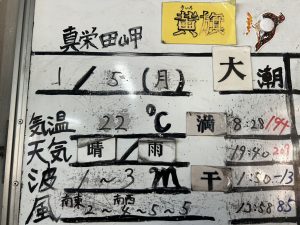 真栄田岬
黄旗
1/5(月)
大潮
気温 22℃ 満 8:28 194
天気 晴/雨 19:40 203
波 1~3m 干 1:50 -13
風 南東2~南西4~5~5 13:58 85